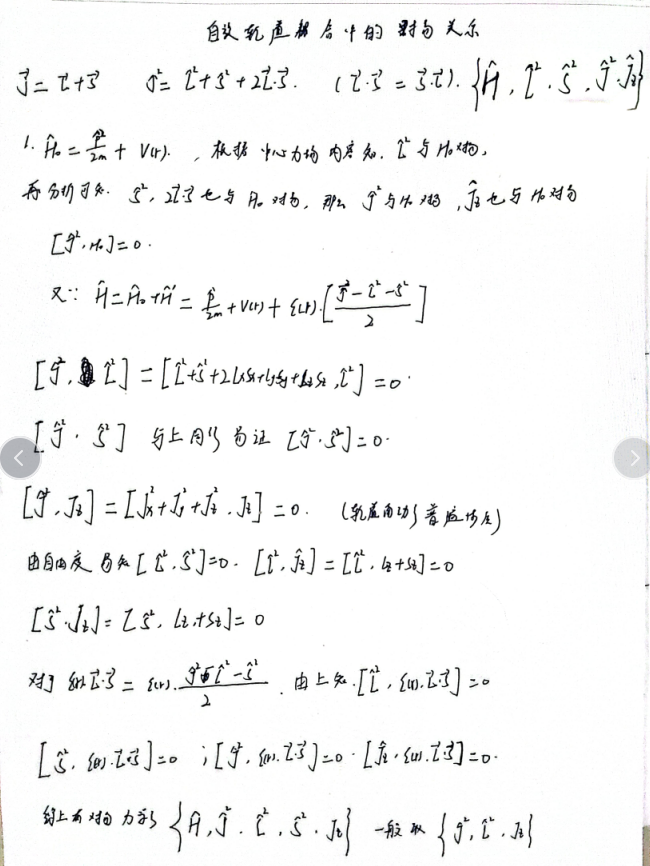 自旋轨道耦合中的对易关系
J⃗ = L⃗ + S⃗  Ĵ² = L̂² + Ŝ² + 2L⃗·S⃗. (L⃗·S⃗ = S⃗·L⃗). {Ĥ, L̂², Ŝ², Ĵ², Ĵz}
1. Ĥ₀ = P̂²/2m + V(r). , 根据中心力场内容知, L̂² 与 H₀ 对易,
再分析可知 Ŝ², 2L⃗·S⃗ 也与 Ĥ₀ 对易, 那么 Ĵ² 与 H₀ 对易, Ĵz 也与 H₀ 对易
[Ĵ², H₀] = 0.
又∵ Ĥ = Ĥ₀ + Ĥ' = P̂²/2m + V(r) + ξ(r).[(Ĵ² - L̂² - Ŝ²)/2]
[Ĵ², L̂²] = [L̂² + Ŝ² + 2LxSx + LySy + LzSz, L̂²] = 0.
[Ĵ², Ŝ²] 与上同 易证 [Ĵ², Ŝ²] = 0.
[Ĵ², Jz] = [Jx² + Jy² + Jz², Jz] = 0. (轨道角动
由自由度易知 [L̂², Ŝ²] = 0. [L̂², Ĵz] = [L̂², Lz + Sz] = 0
[Ŝ², Jz] = [Ŝ², Lz + Sz] = 0
对于 ξ(r)L⃗·S⃗ = ξ(r).(Ĵ² - L̂² - Ŝ²)/2 . 由上知. [L̂², ξ(r).L⃗·S⃗] = 0
[Ŝ², ξ(r).L⃗·S⃗] = 0 ; [Ĵ², ξ(r).L⃗·S⃗] = 0. [Ĵz, ξ(r).L⃗·S⃗] = 0.
综上有对易力 {Ĥ, Ĵ², L̂², Ŝ², Jz} 一般取 {Ĵ², L̂², Jz}